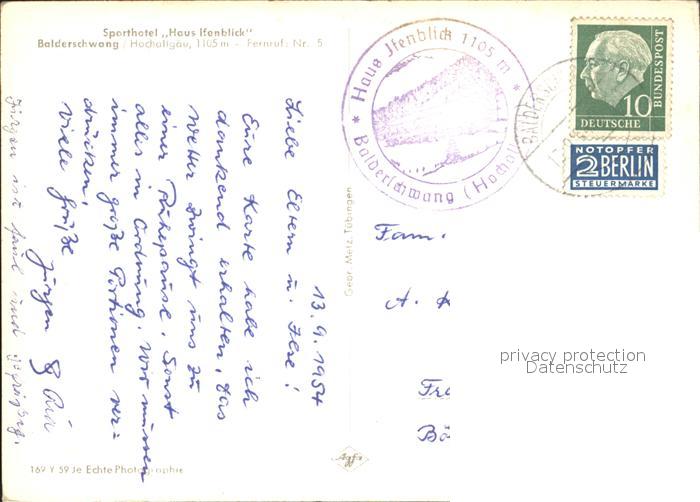 Sporthotel „Haus Ifenblick"
Balderschwang / Hochallgäu, 1105 m - Fernruf: Nr. 5
13.9.1954
Liebe Eltern u. Ilse!
Eure Karte habe ich
dankend erhalten, das
Wetter zwingt uns zu
einer Ruhepause. Sonst
alles in Ordnung. Wir müssen
immer große Portionen ver=
drücken.
Viele Grüße
Jürgen
Jürgen ist faul und
169 Y 59 Je Echte Photographie
Gebr. Metz, Tübingen
Agfa
* Haus Ifenblick 1105 m *
Balderschwang (Hochall
BALDER
10
DEUTSCHE
BUNDESPOST
NOTOPFER
2 BERLIN
STEUERMARKE
Fam.
A. K
Fr
Bö
privacy protection
Datenschutz